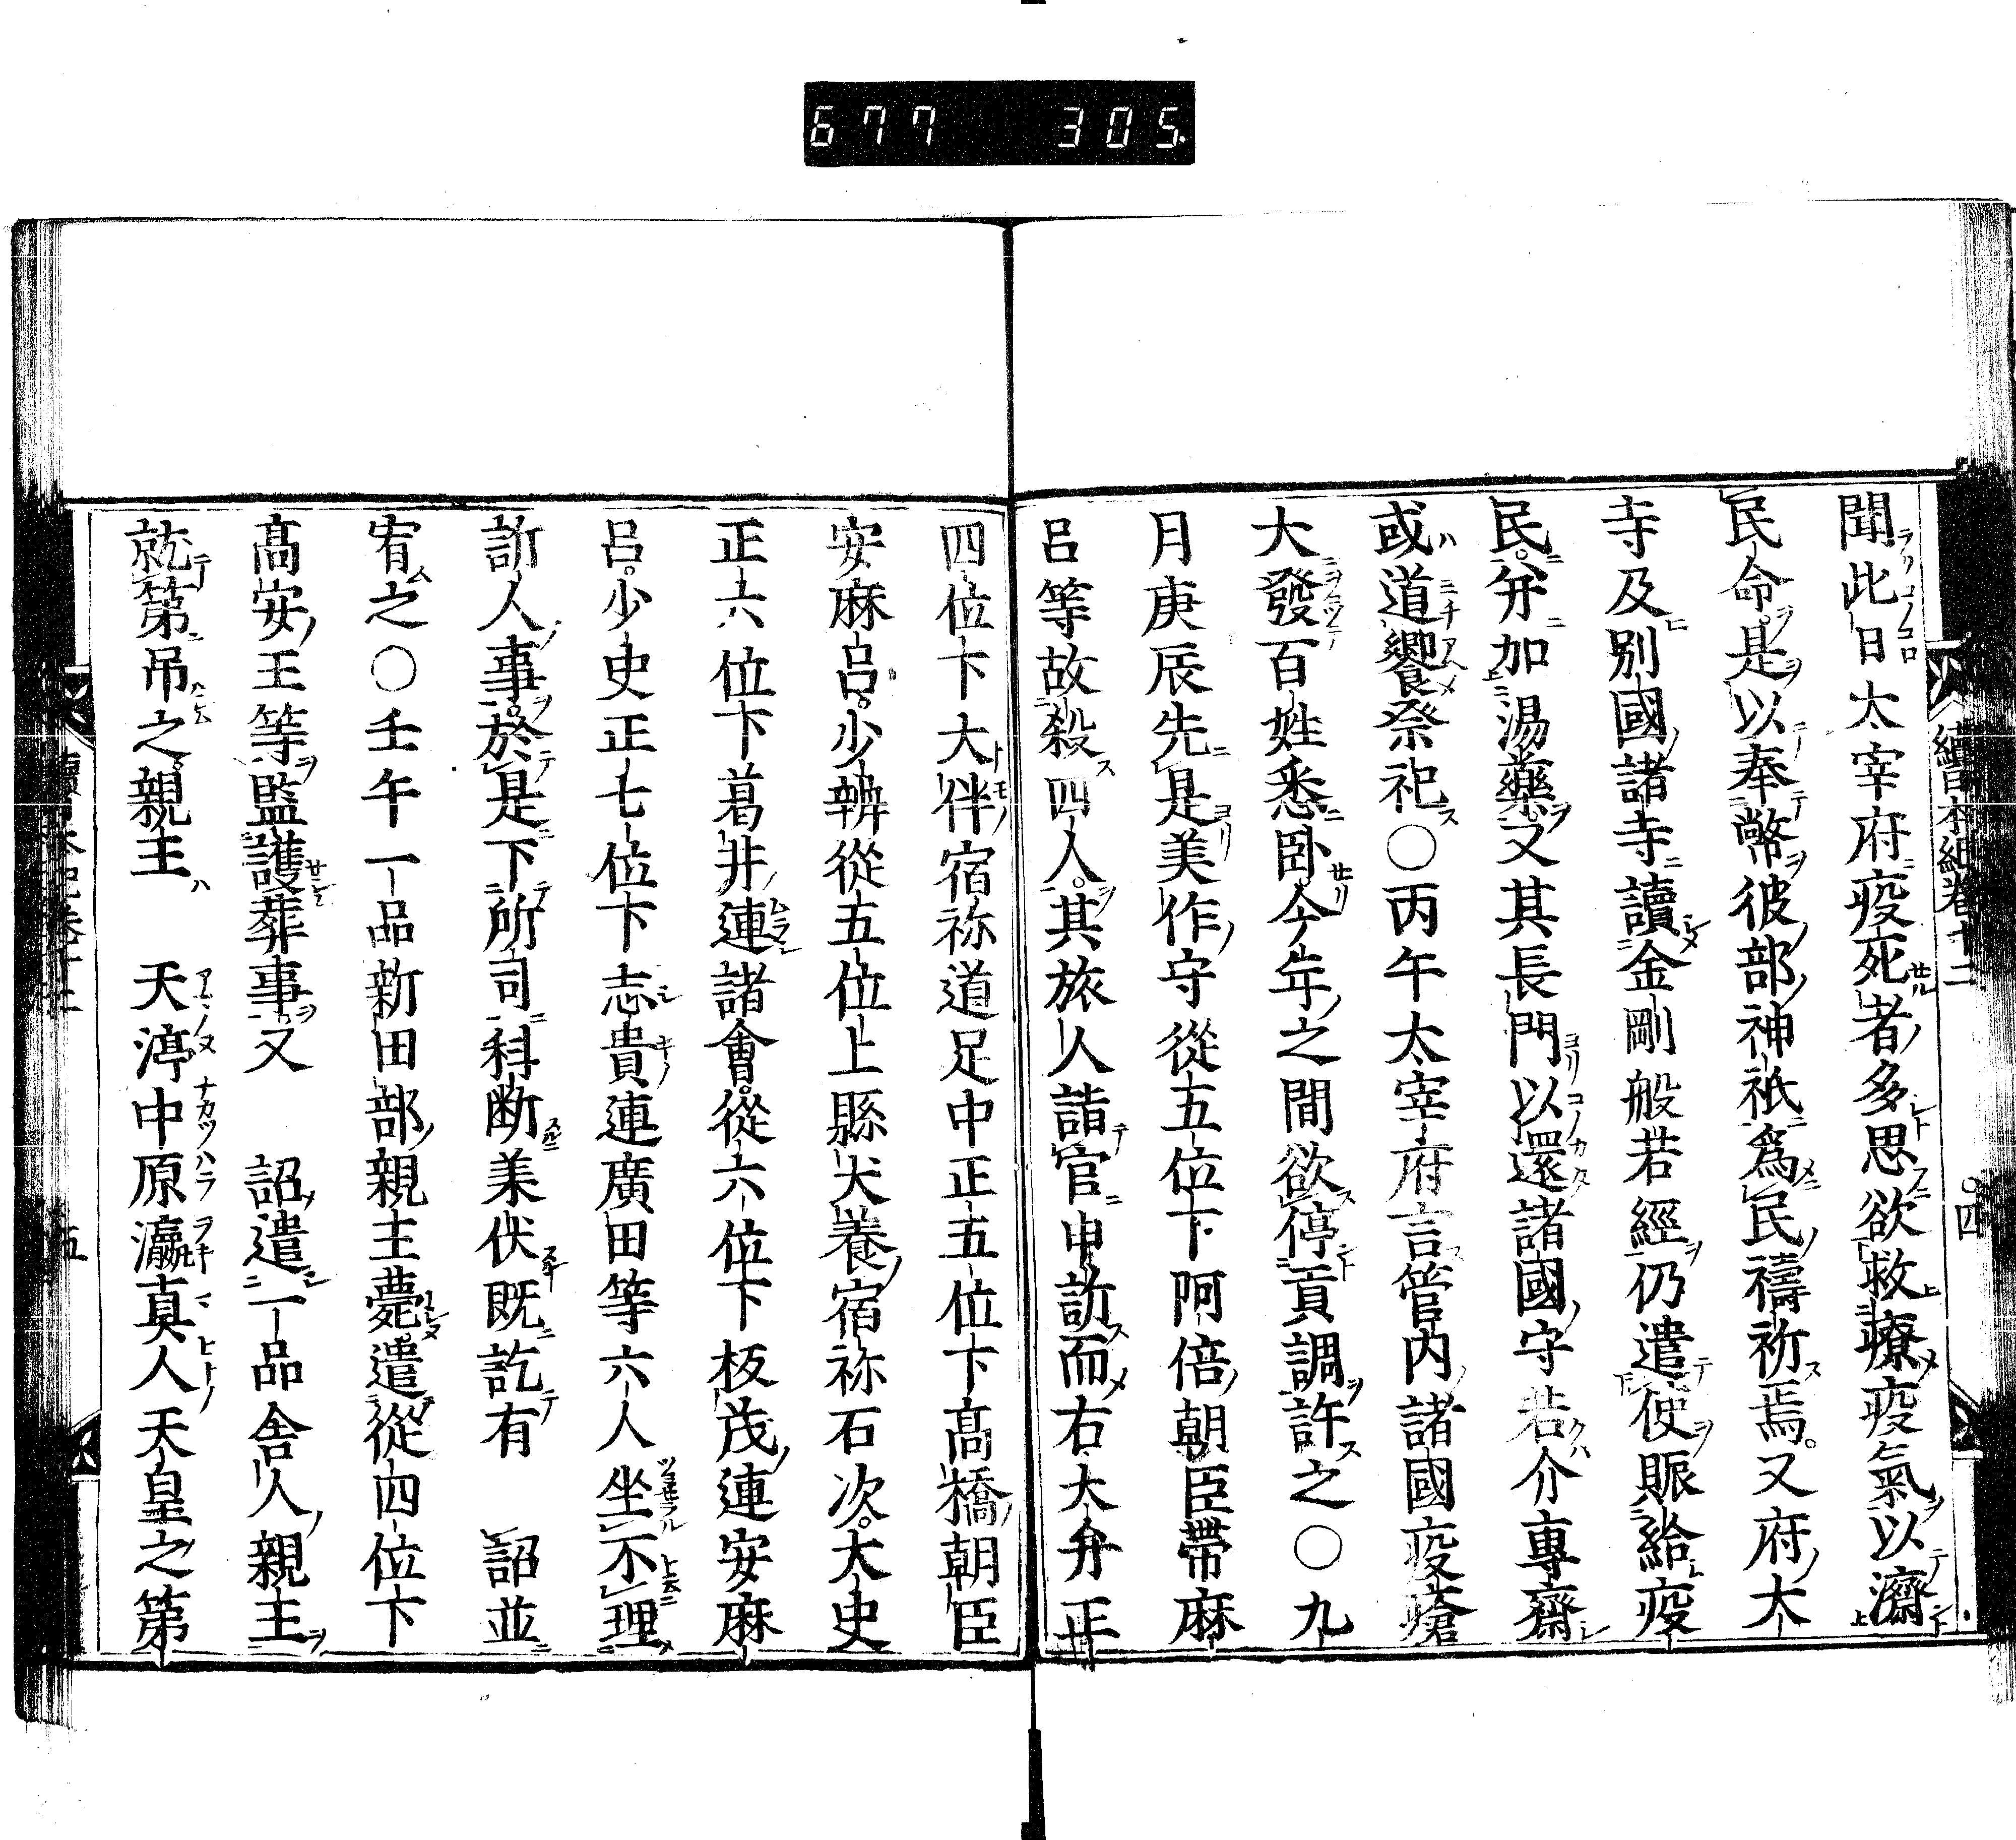 677 305
續日本紀卷十二 四
聞此日太宰府疫死者多思欲救療疫氣以濟
民命是以奉幣彼部神祇爲民禱祈焉又府大
寺及別國諸寺讀金剛般若經仍遣使賑給疫
民并加湯藥又其長門以還諸國守若介專齋
或道饗祭祀○丙午太宰府言管內諸國疫瘡
大發百姓悉臥今年之間欲停貢調許之○九
月庚辰先是美作守從五位下阿倍朝臣帶麻
呂等故殺四人其旅人詣官申訴而右大弁正
四位下大伴宿祢道足中正五位下高橋朝臣
安麻呂少辨從五位上縣犬養宿祢石次大史
正六位下葛井連諸會從六位下板茂連安麻
呂少史正七位下志貴連廣田等六人坐不理
訴人事於是下所司科斷羕伏既訖有 詔並
宥之○壬午一品新田部親王薨遣從四位下
高安王等監護葬事又 詔遣一品舍人親王
就第吊之親王 天渟中原瀛真人天皇之第
續日本紀卷十二 五